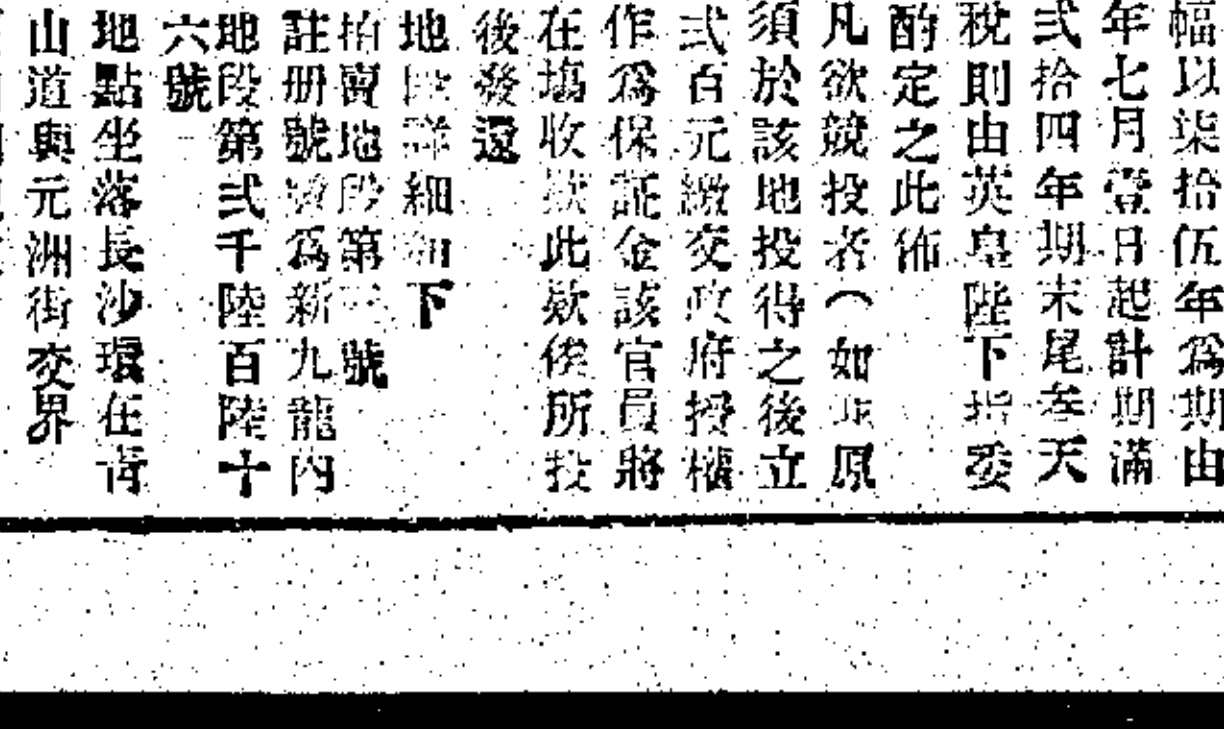 幅以柒拾伍年爲期由
年七月壹日起計期滿
弍拾四年期末尾叁天
稅則由英皇陛下指委
酌定之此佈
凡欲競投者（如非原
須於該地投得之後立
弍百元繳交政府授權
作爲保証金該官員將
在塲收欵此欵俟所投
後發還
地段詳細如下
拍賣地段第 號
註册號數爲新九龍內
地段第弍千陸百陸十
六號
地點坐落長沙環在靑
山道與元洲街交界